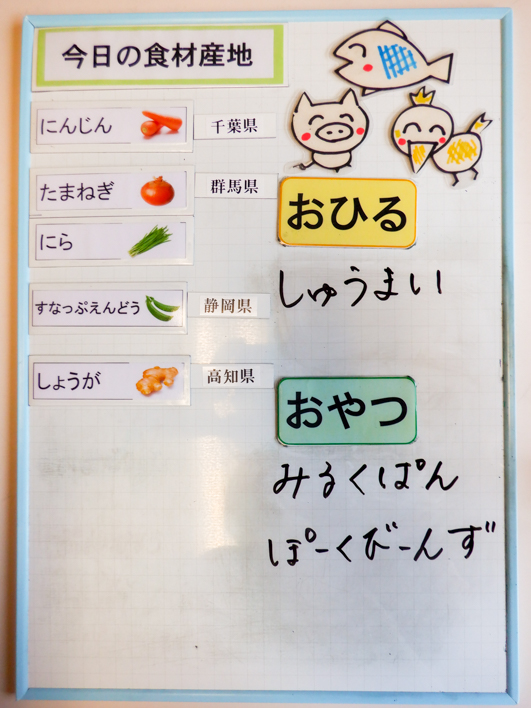 今日の食材産地
にんじん 千葉県
たまねぎ 群馬県
にら
すなっぷえんどう 静岡県
しょうが 高知県
おひる
しゅうまい
おやつ
みるくぱん
ぽーくびーんず